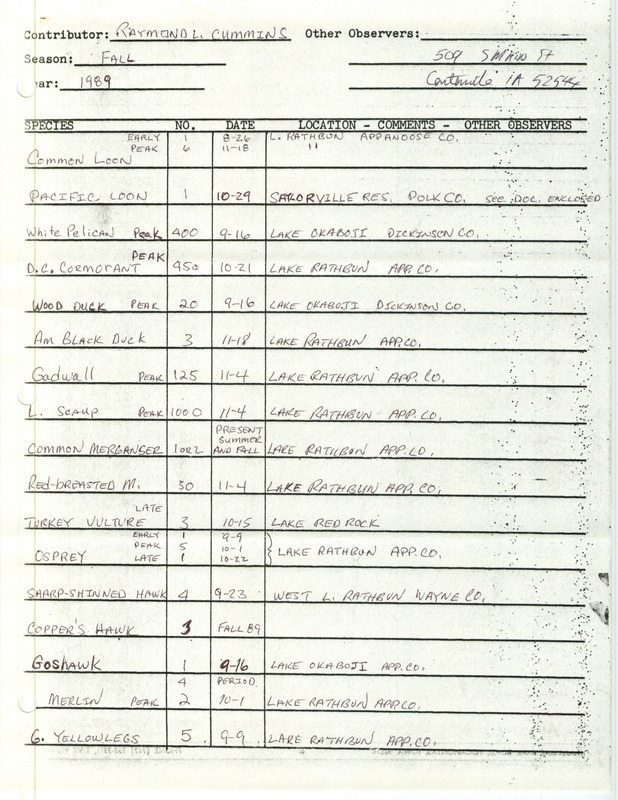 Contributor: RAYMOND L. CUMMINS Other Observers:
Season: FALL 509 S MAIN St
ear: 1989 Centerville IA 52544
SPECIES NO. DATE LOCATION - COMMENTS - OTHER OBSERVERS
EARLY 1 8-26 L. RATHBUN APPANOOSE CO.
PEAK 6 11-18 "
Common Loon
PACIFIC LOON 1 10-29 SAYLORVILLE RES. POLK CO. SEE DOC. ENCLOSED
White Pelican Peak 400 9-16 LAKE OKABOJI DICKINSON CO.
PEAK
D.C. CORMORANT 450 10-21 LAKE RATHBUN APP. CO.
WOOD DUCK PEAK 20 9-16 LAKE OKABOJI DICKINSON CO.
Am BLACK DUCK 3 11-18 LAKE RATHBUN APP. CO.
Gadwall PEAK 125 11-4 LAKE RATHBUN APP. CO.
L. SCAUP PEAK 1000 11-4 LAKE RATHBUN APP. CO.
PRESENT
Summer
COMMON MERGANSER 1 OR 2 AND FALL LAKE RATHBUN APP. CO.
Red-breasted M. 30 11-4 LAKE RATHBUN APP. CO.
LATE
TURKEY VULTURE 3 10-15 LAKE RED ROCK
EARLY 1 9-9
OSPREY PEAK 5 10-1 } LAKE RATHBUN APP. CO.
LATE 1 10-22
SHARP-SHINNED HAWK 4 9-23 WEST L. RATHBUN WAYNE CO.
COPPER'S HAWK 3 FALL 89
GOSHAWK 1 9-16 LAKE OKABOJI APP. CO.
4 PERIOD
MERLIN PEAK 2 10-1 LAKE RATHBUN APP. CO.
G. YELLOWLEGS 5 9-9 LAKE RATHBUN APP. CO.